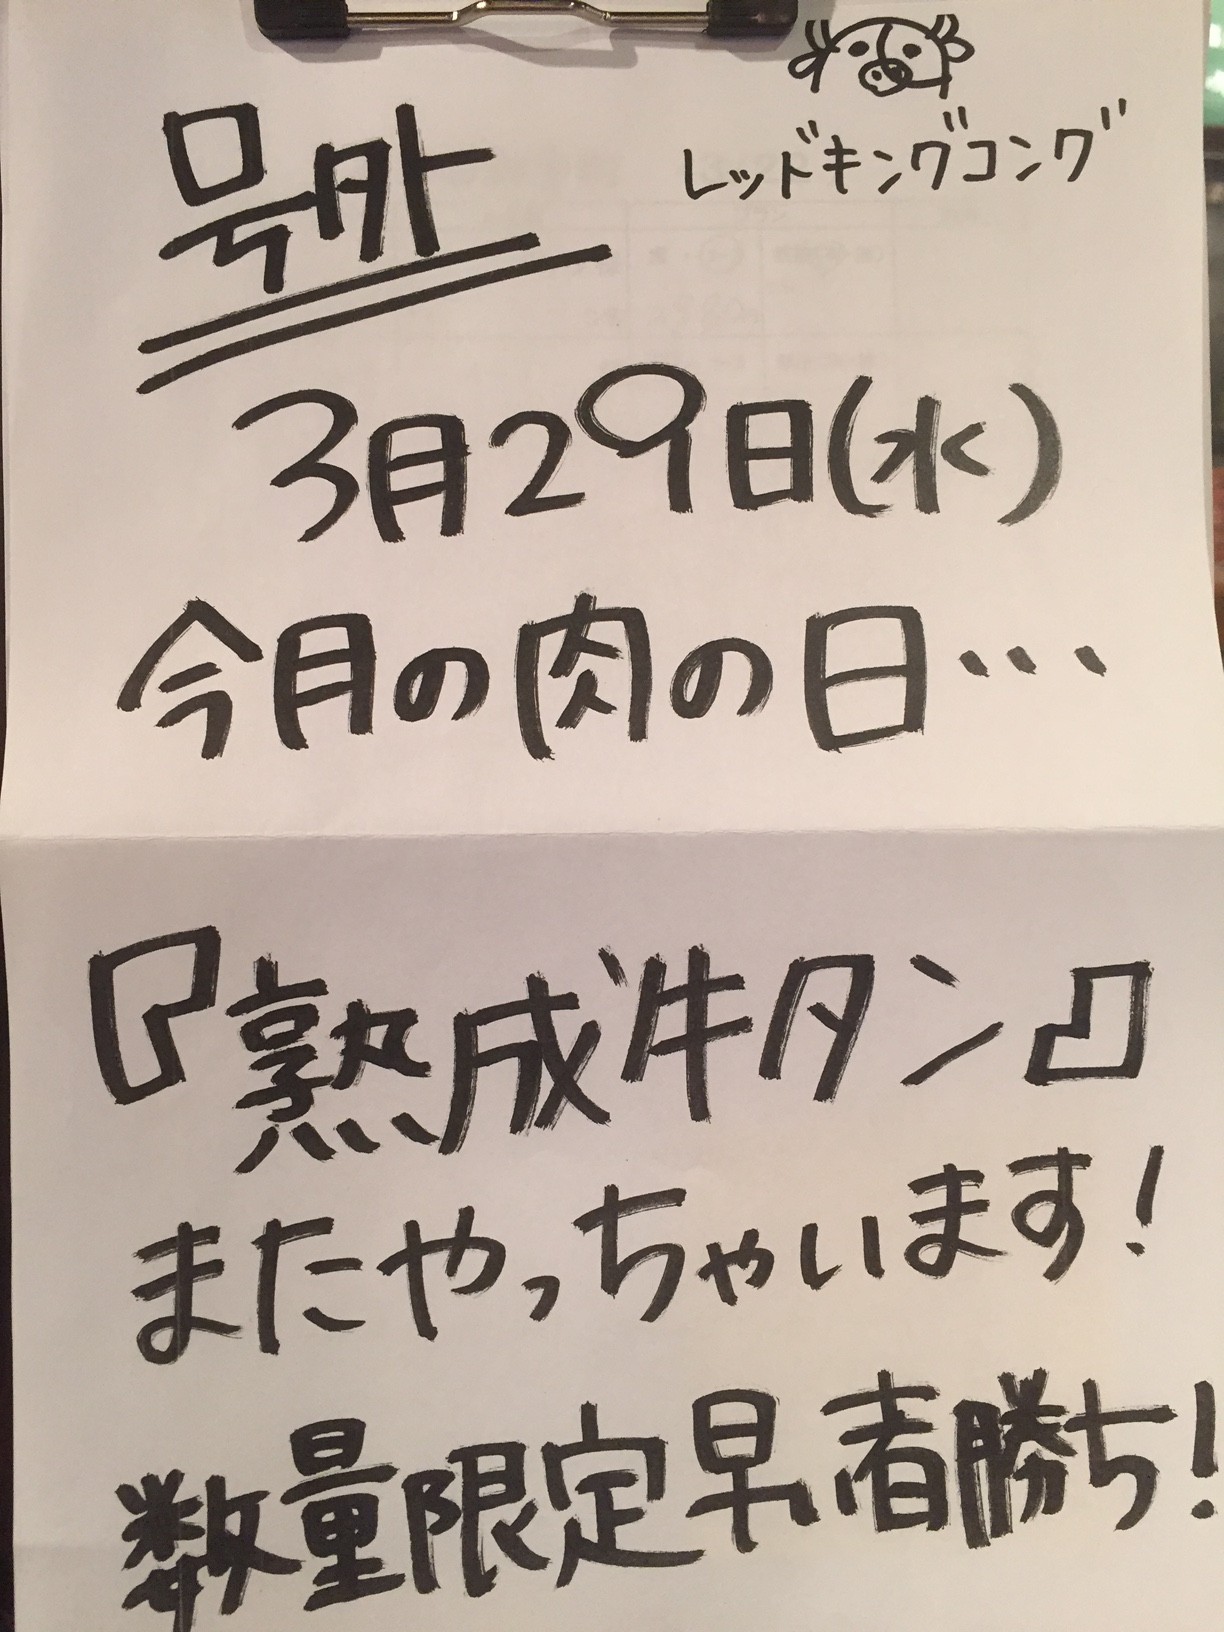 レッドキングコング
号外
3月29日(水)
今月の肉の日・・・
『熟成牛タン』
またやっちゃいます!
数量限定早い者勝ち!